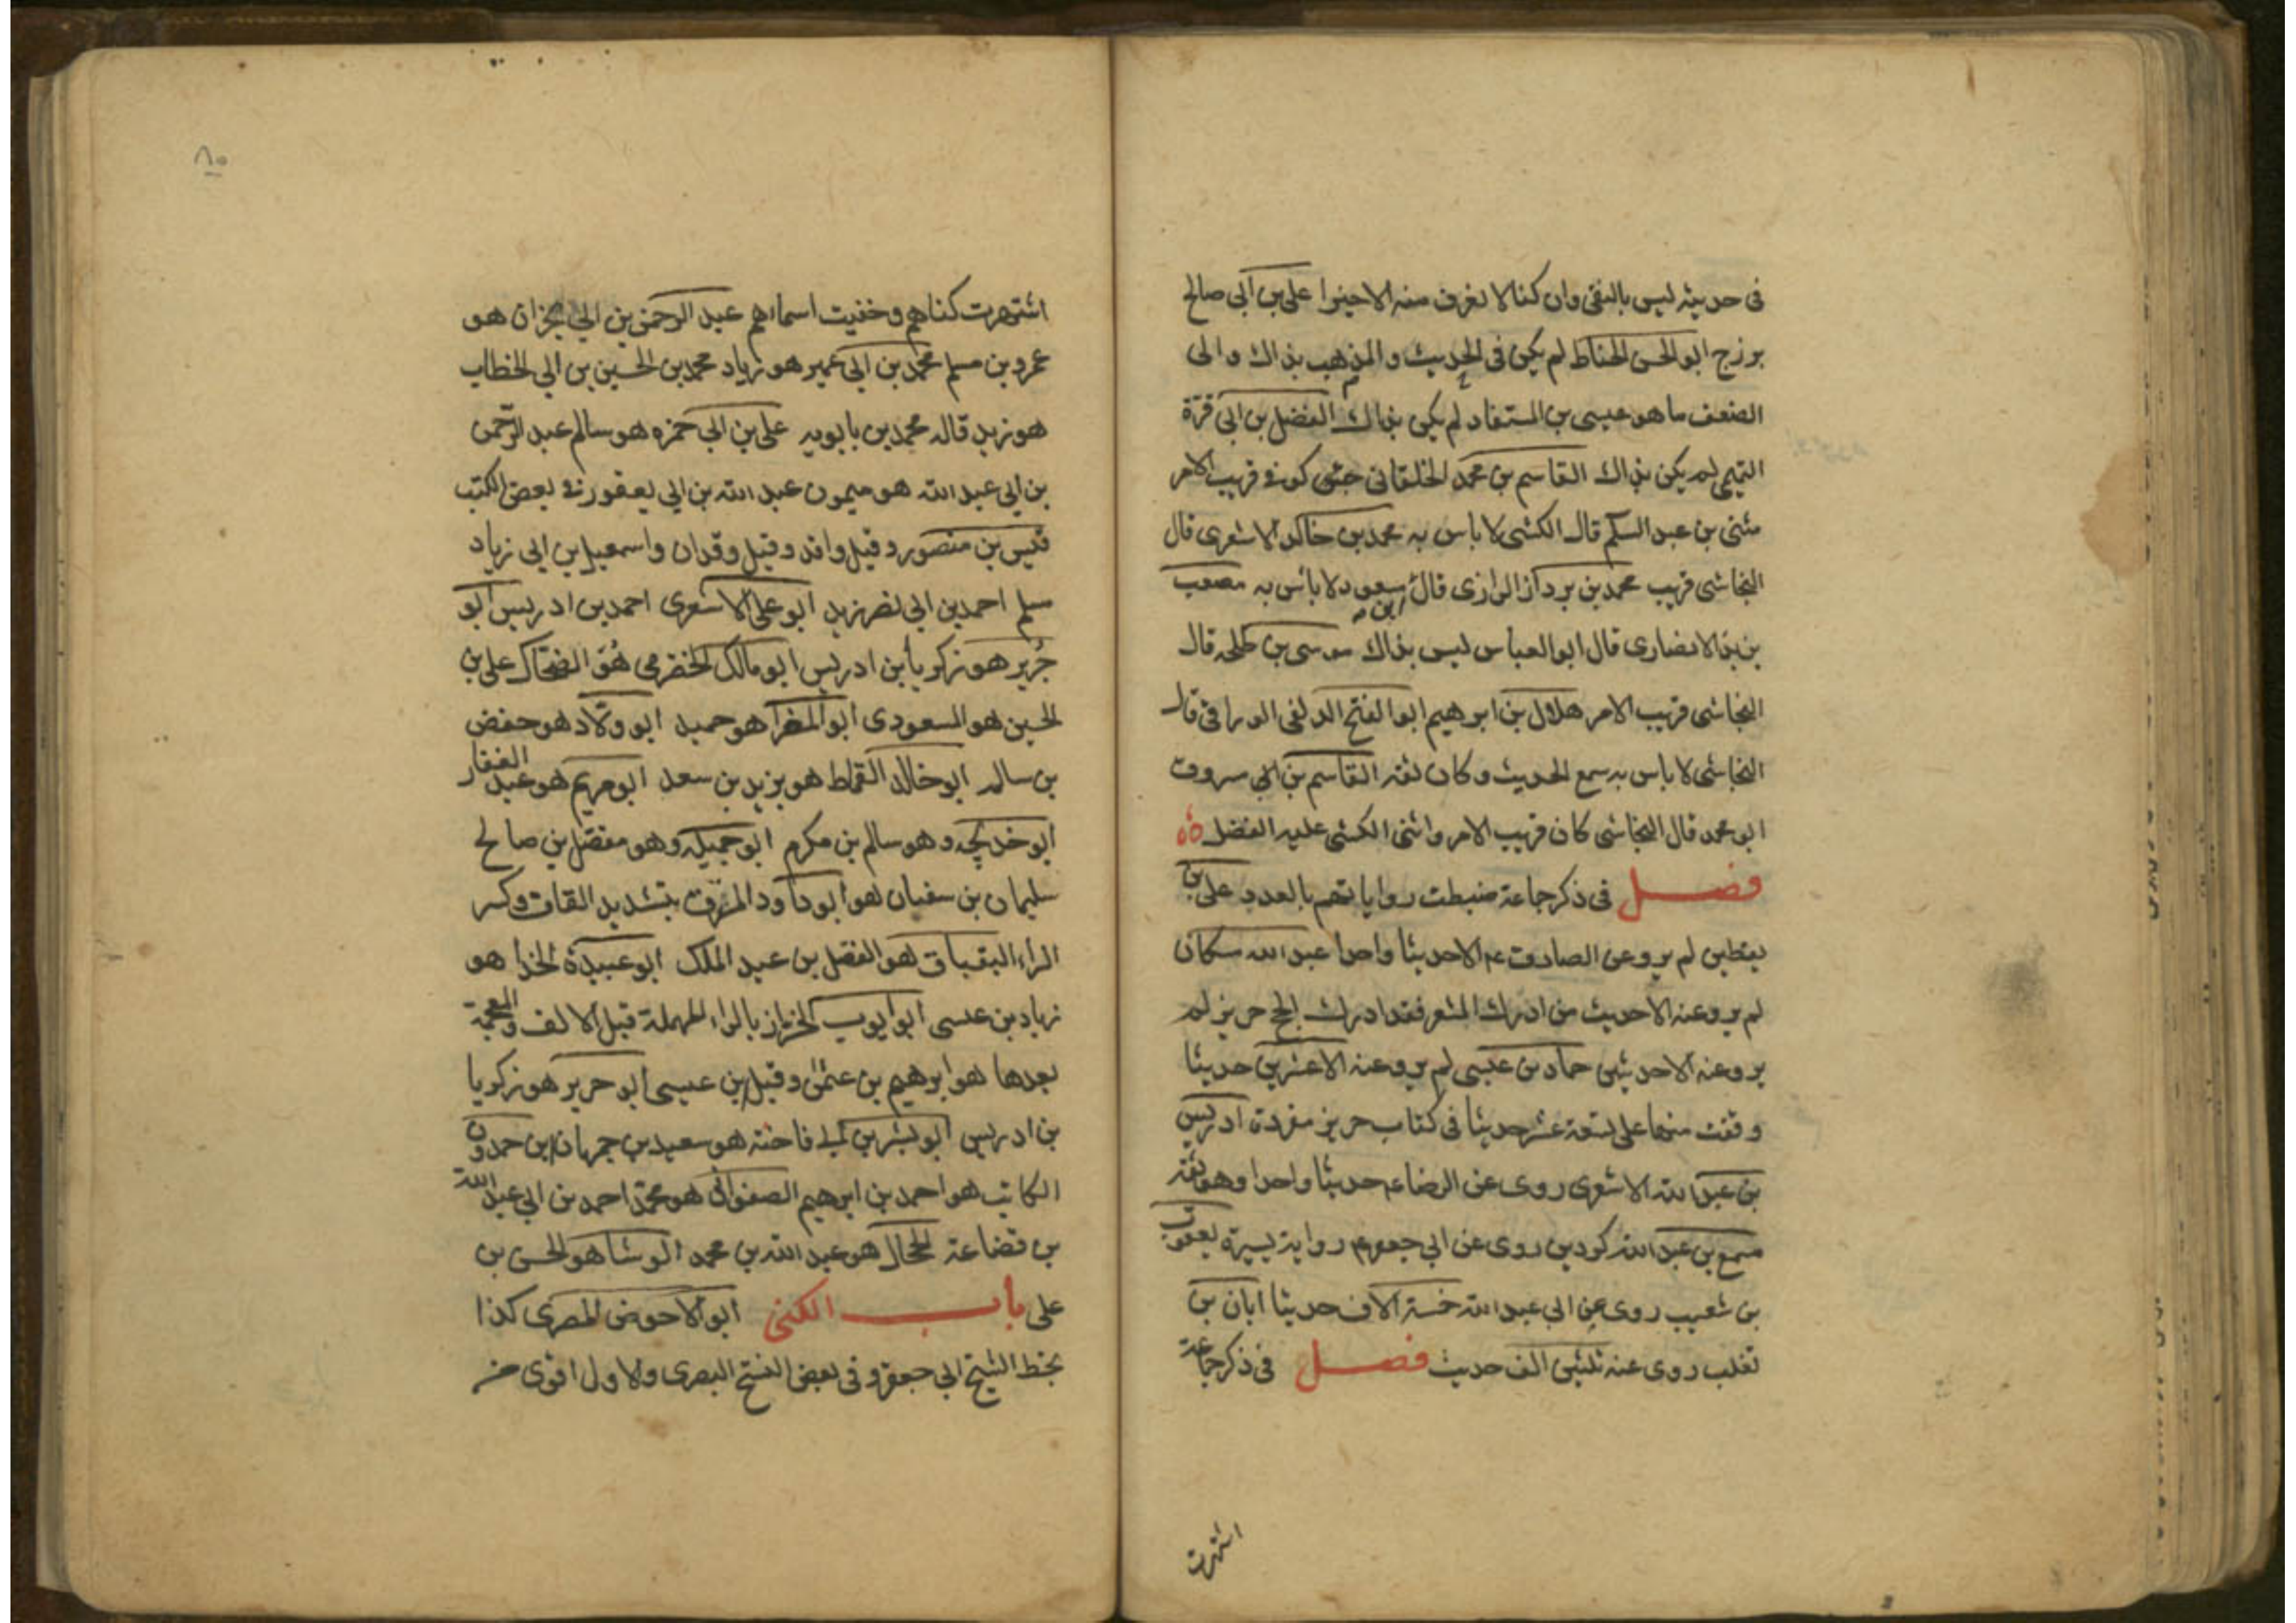 فى حديثه ليس بالنقى وان كنا لا نعرف منه الا خيرا على بن ابى صالح
بزرج ابو الحسن الحناط لم يكن فى الحديث والمذهب بذاك والى
الضعف ما هو عيسى بن المستفاد لم يكن بذاك الفضل بن ابى قرة
التميمى لم يكن بذاك القاسم بن محمد الخلقانى كوفى قريب الامر
مثنى بن عبد السلام قال الكشى لا باس به محمد بن خالد الاشعرى قال
النجاشى قريب محمد بن يزداز الرازى قال ابن مسعود لا باس به مصعب
بن الانصارى قال ابو العباس ليس بذاك موسى بن طلحه قال
النجاشى قريب الامر هلال بن ابرهيم ابو الفتح الدلفى الوراق قال
النجاشى لا باس به سمع الحديث وكان ثقة القاسم بن ابى مسروق
ابو محمد قال النجاشى كان قريب الامر واثنى الكشى عليه الفضل
فصل فى ذكر جماعة ضبطت رواياتهم بالعدد على بن
يقطين لم يرو عن الصادق ع الا حديثا واحدا عبد الله سكان
لم يرو عنه الا حديث من ادرك المشعر فقد ادرك الحج حريز لم
يرو عنه الا حديثين حماد بن عيسى لم يرو عنه الا عشرين حديثا
وقفت منها على تسعة عشر حديثا فى كتاب حريز مفردة ادريس
بن عبد الله الاشعرى روى عن الرضا ع حديثا واحدا وهو ثقة
مسمع بن عبد الله كردين روى عن ابى جعفر ع رواية يسيرة يعقوب
بن شعيب روى عن ابى عبد الله خمسة الاف حديثا ابان بن
تغلب روى عنه ثلثين الف حديث فصل فى ذكر جماعة
اشتهرت
٨٠
اشتهرت كناهم وخفيت اسماءهم عبد الرحمن بن ابى نجران هو
عمرو بن مسلم محمد بن ابى عمير هو زياد محمد بن الحسين بن ابى الخطاب
هو زيد قاله محمد بن بابويه على بن ابى حمزه هو سالم عبد الرحمن
بن ابى عبد الله هو ميمون عبد الله بن ابى يعفور فى بعض الكتب
قيس بن منصور وقيل واقد وقيل وقدان واسمعيل بن ابى زياد
مسلم احمد بن ابى نصر زيد ابو على الاشعرى احمد بن ادريس ابو
جرير هو زكريا بن ادريس ابو مالك الحضرمى هو الضحاك على بن
الحسين هو المسعودى ابو المغرا هو حميد ابو ولاد هو حفص
بن سالم ابو خالد القماط هو يزيد بن سعد ابو مريم هو عبد الغفار
ابو خديجه وهو سالم بن مكرم ابو جميله وهو مفضل بن صالح
سليمان بن سفيان هو ابو داود المسترق بتشديد القاف وكسر
الراء البقباق هو الفضل بن عبد الملك ابو عبيدة الحذا هو
زياد بن عيسى ابو ايوب الخراز بالراء المهملة قبل الالف والمعجمة
بعدها هو ابرهيم بن عثمن وقيل بن عيسى ابو حرير هو زكريا
بن ادريس ابو بشر بن فاخته هو سعيد بن جمهان ابن حمدون
الكاتب هو احمد بن ابرهيم الصفوانى هو محمد احمد بن ابى عبد الله
بن قضاعة الحجال هو عبد الله بن محمد الوشا هو الحسن بن
على باب الكنى ابو الاحوص المصرى كذا
بخط الشيخ ابى جعفر وفى بعض النسخ البصرى والاول اقوى